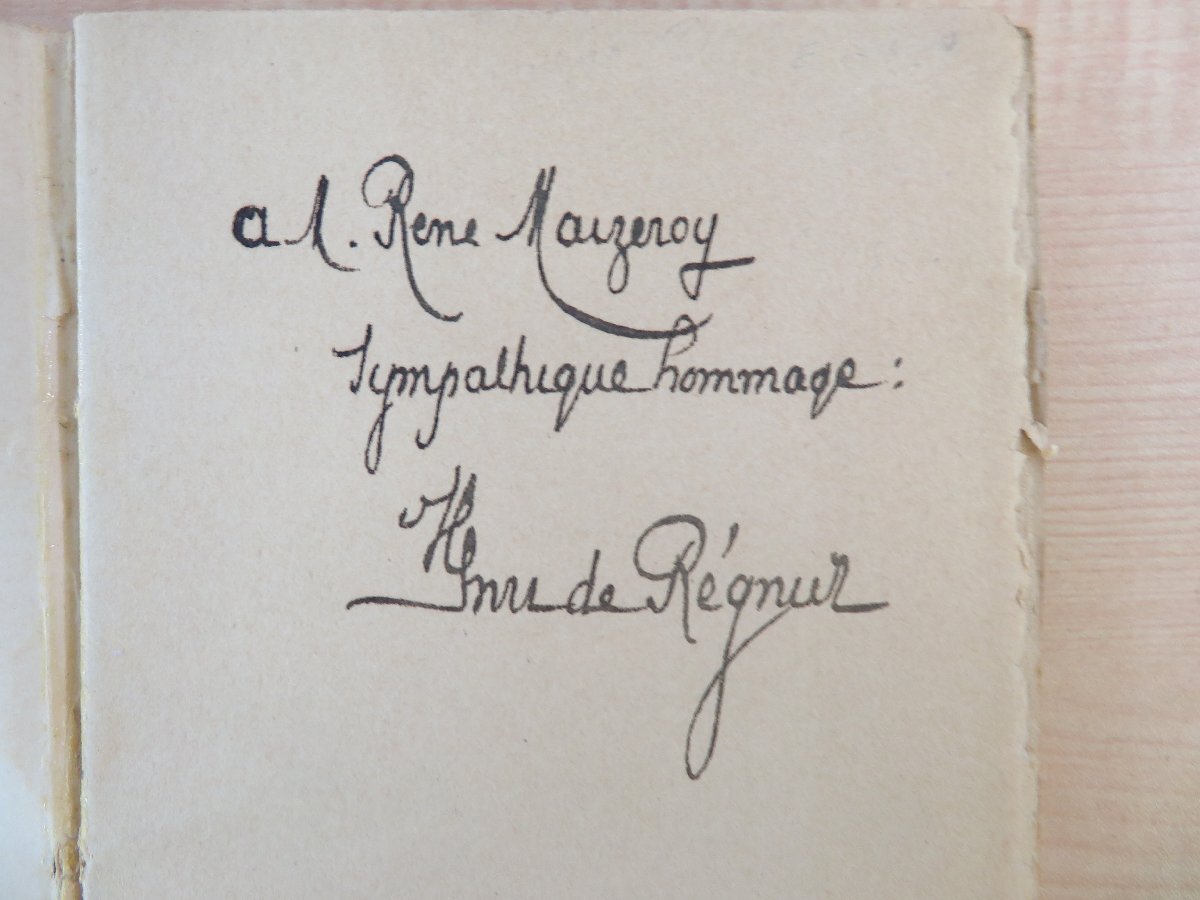 a M. René Maizeroy
Sympathique hommage :
Henri de Régnier